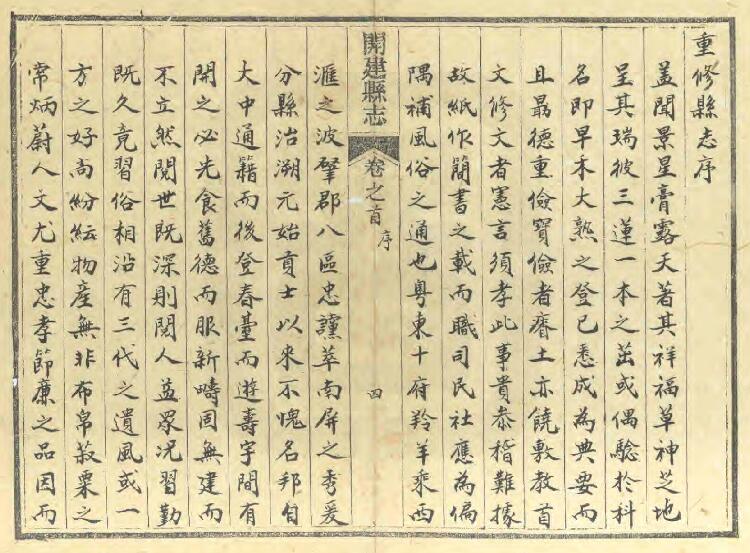 重修縣志序
蓋聞景星膏露天著其祥福草神芝地
呈其瑞彼三蓮一本之茁或偶驗於科
名即早禾大熟之登已悉成為典要而
且最德重儉寶儉者瘠土亦饒敷教首
文修文者憲言須孝此事貴叅稽難據
故紙作簡書之載而職司民社應為偏
隅補風俗之通也粵東十府羚羊乘西
開建縣志
卷之首
序
四
滙之波肇郡八區忠讜萃南屏之秀爰
分縣治溯元始貢士以來不愧名邦自
大中通籍而後登春臺而遊壽宇間有
開之必先食舊德而服新疇固無建而
不立然閱世既深則閱人益眾況習勤
既久竟習俗相沿有三代之遺風或一
方之好尚紛紜物產無非布帛菽粟之
常炳蔚人文尤重忠孝節廉之品因而